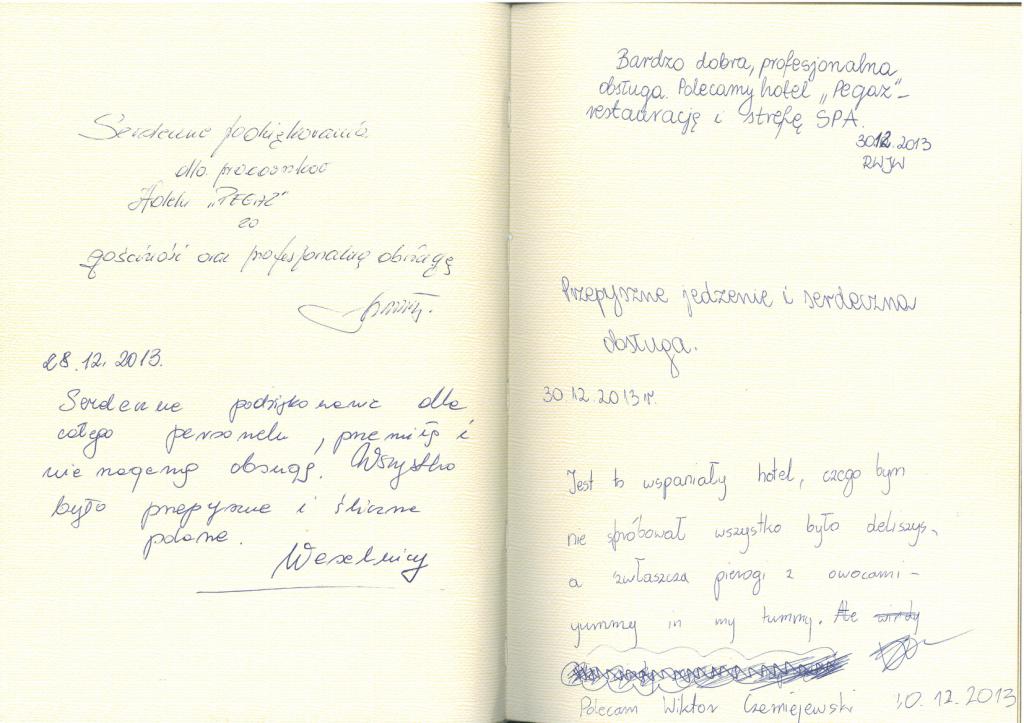 Serdeczne podziękowania
dla pracowników
Hotelu „PEGAZ"
za
gościnność oraz profesjonalną obsługę
28.12.2013.
Serdeczne podziękowania dla
całego personelu, przemiłą i
nie naganną obsugę. Wszystko
było przepyszne i ślicznie
podane.
Weselnicy
Bardzo dobra, profesjonalna
obsługa. Polecamy hotel „Pegaz"-
restaurację i strefę SPA.
30.12.2013
RWJW
Przepyszne jedzenie i serdeczna
obsługa.
30.12.2013 r.
Jest to wspaniały hotel, czego bym
nie spróbował wszystko było deliszys,
a zwłaszcza pierogi z owocami -
yummy in my tummy. Ale
Polecam Wiktor Czerniejewski 30.12.2013